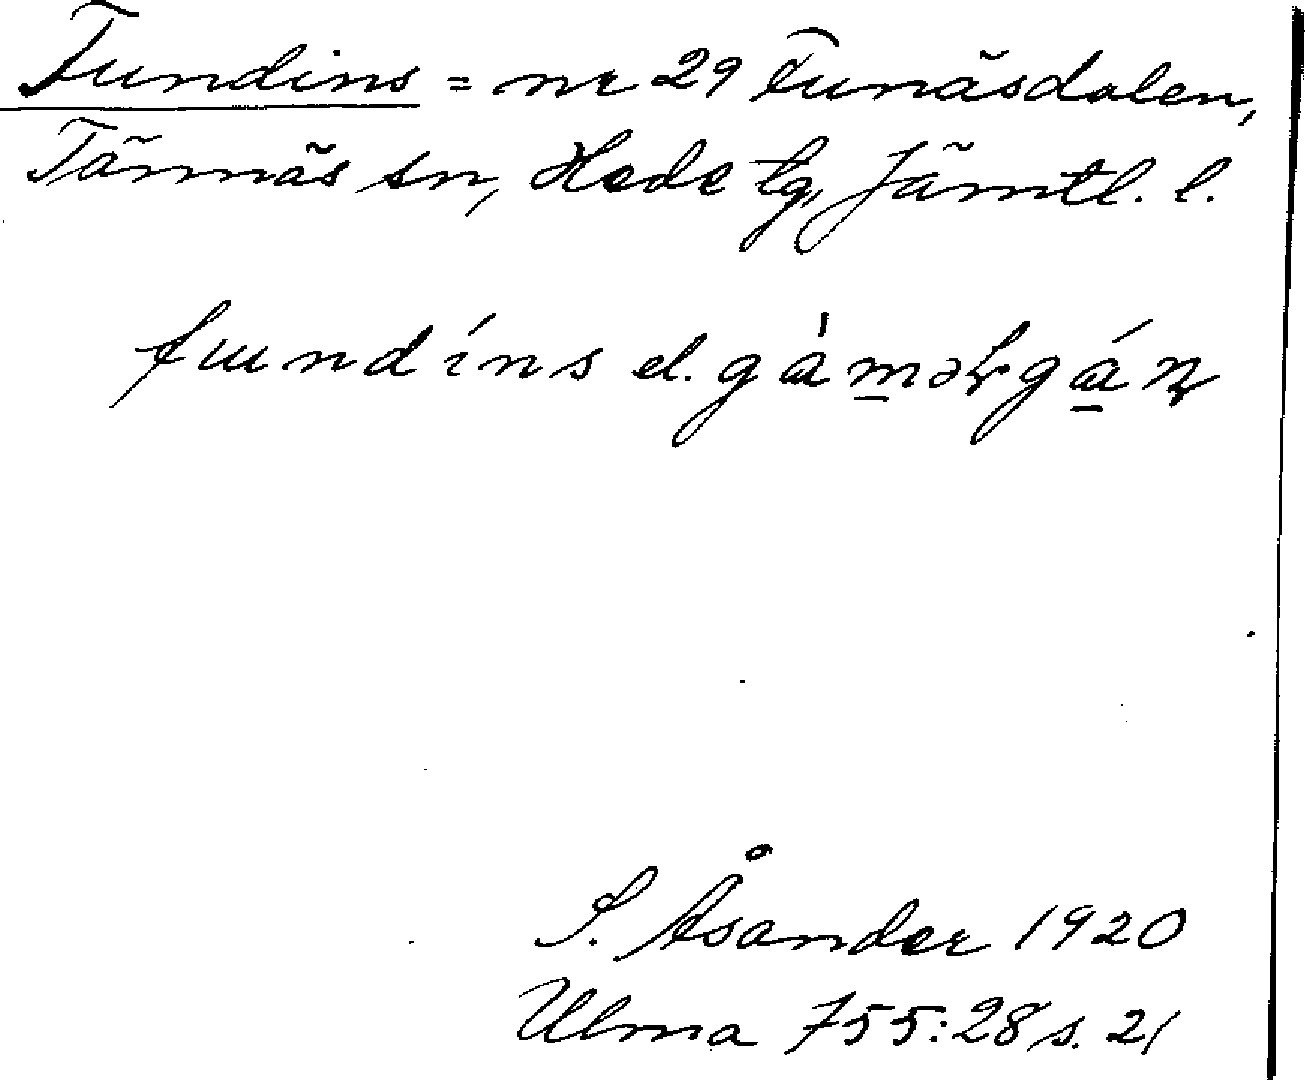 Fundins = nr 29 Funäsdalen,
Tännäs sn, Hede tg, Jämtl. l.
fɯndíns el.
S. Åsander 1920
Ulma 755:28 s. 21